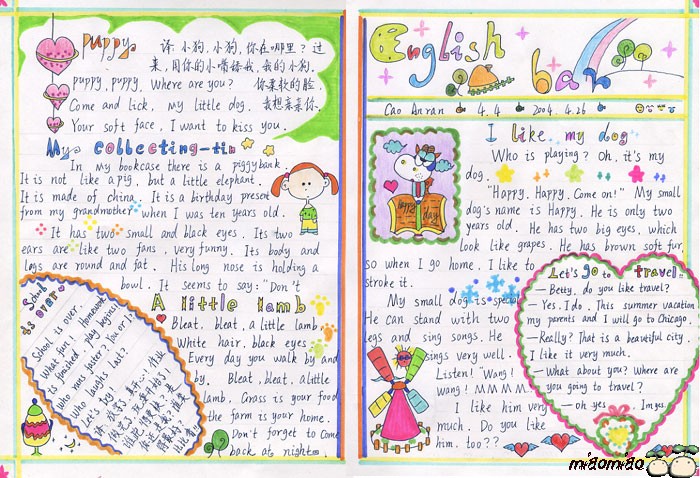 Puppy
译: 小狗, 小狗, 你在哪里? 过
来, 用你的小嘴舔我, 我的小狗.
puppy, puppy, Where are you? 你柔软的脸,
Come and lick, my little dog. 我想亲亲你.
Your soft face, I want to kiss you.
My collecting-tin
In my bookcase there is a piggybank.
It is not like a pig, but a little elephant.
It is made of china. It is a birthday present
from my grandmother when I was ten years old.
It has two small and black eyes. Its two
ears are like two fans, very funny. Its body and
legs are round and fat. His long nose is holding a
bowl. It seems to say: "Don't
School
is over
School is over.
what fun! Homework
is finished, play begins!
who runs faster? You or I?
Who laughs last?
Let's try
A little lamb
Bleat, bleat, a little lamb,
White hair, black eyes.
Every day you walk by and
by. Bleat, bleat, a little
lamb, Grass is your food
the farm is your home.
Don't forget to come
back at night.
English
ban
Cao Anran 4.4 2004.4.26
I like my dog
Who is playing? Oh, it's my
dog.
"Happy, Happy, Come on!" My small
dog's name is Happy. He is only two
years old. He has two big eyes, which
look like grapes. He has brown soft fur,
so when I go home, I like to
stroke it.
My small dog is special
He can stand with two
legs and sing songs. He
sings very well.
Listen! "Wang!
wang! M M M M."
I like him very
much. Do you like
him, too??
happy day
Let's go to travel
— Betty, do you like travel?
— Yes, I do. This summer vacation
my parents and I will go to Chicago.
— Really? That is a beautiful city.
I like it very much.
— What about you? Where are
you going to travel?
— oh yes
miaomiao